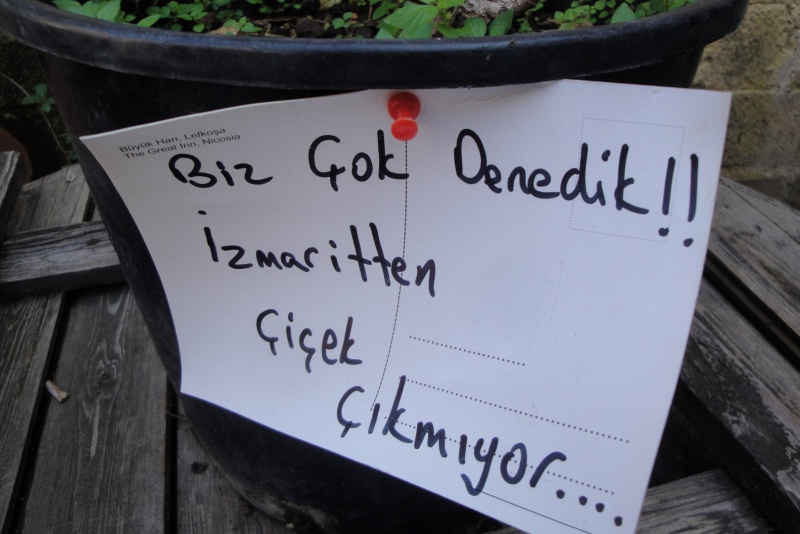 Büyük Han, Lefkoşa
The Great Inn, Nicosia
Biz Çok Denedik!!
İzmaritten
Çiçek
Çıkmıyor....